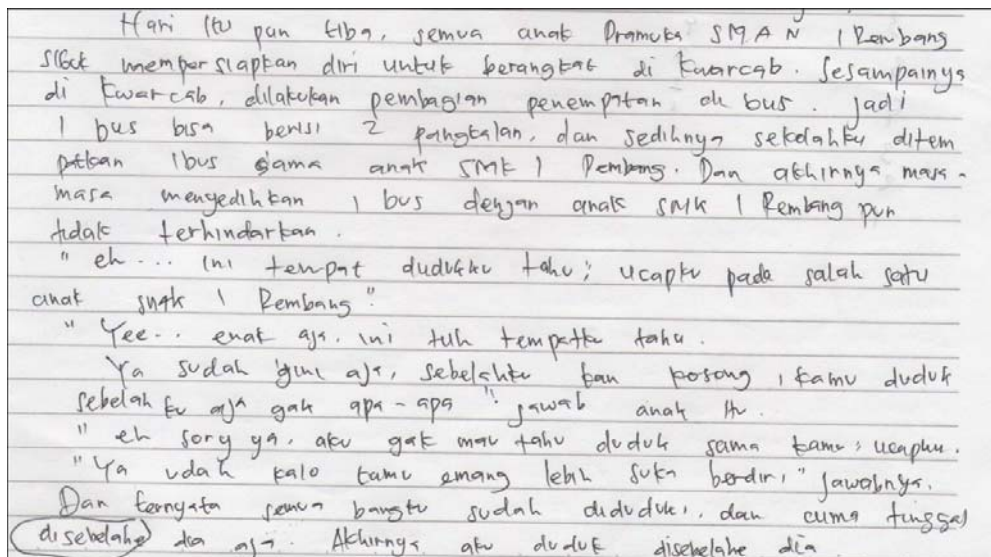 Hari itu pun tiba, semua anak Pramuka SMA N 1 Rembang
sibuk mempersiapkan diri untuk berangkat di Kwarcab. Sesampainya
di Kwarcab, dilakukan pembagian penempatan di bus. jadi
1 bus bisa berisi 2 pangkalan, dan sedihnya sekolahku ditem
patkan 1bus sama anak SMK 1 Rembang. Dan akhirnya masa-
masa menyedihkan 1 bus dengan anak SMK 1 Rembang pun
tidak terhindarkan.
" eh... ini tempat dudukku tahu", ucapku pada salah satu
anak smk 1 Rembang".
" Yee... enak aja. ini tuh tempatku tahu.
Ya sudah gini aja, sebelahku kan kosong, kamu duduk
sebelah ku aja gak apa-apa". jawab anak itu.
" eh sory ya, aku gak mau tahu duduk sama kamu", ucapku.
"Ya udah kalo kamu emang lebih suka berdiri," jawabnya.
Dan ternyata semua bangku sudah diduduki, dan cuma tinggal
disebelahe dia aja. Akhirnya aku duduk disebelahe dia